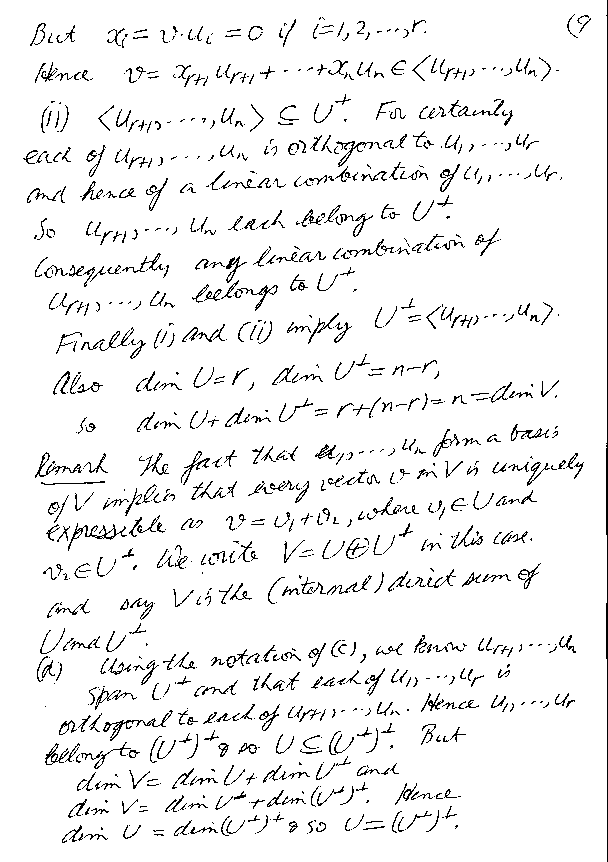 (9
But x_i = v·u_i = 0 if i=1,2,...,r.
Hence v = x_{r+1}u_{r+1} + ... + x_n u_n ∈ <u_{r+1}, ..., u_n>.
(ii) <u_{r+1}, ..., u_n> ⊆ U^⊥. For certainly
each of u_{r+1}, ..., u_n is orthogonal to u_1, ..., u_r
and hence of a linear combination of u_1, ..., u_r.
So u_{r+1}, ..., u_n each belong to U^⊥.
Consequently any linear combination of
u_{r+1}, ..., u_n belongs to U^⊥.
Finally (i) and (ii) imply U^⊥ = <u_{r+1}, ..., u_n>.
Also dim U = r, dim U^⊥ = n-r,
so dim U + dim U^⊥ = r+(n-r) = n = dim V.
Remark The fact that u_1, ..., u_n form a basis
of V implies that every vector v in V is uniquely
expressible as v = v_1 + v_2, where v_1 ∈ U and
v_2 ∈ U^⊥. We write V = U ⊕ U^⊥ in this case.
and say V is the (internal) direct sum of
U and U^⊥.
(d) Using the notation of (c), we know u_{r+1}, ..., u_n
span U^⊥ and that each of u_1, ..., u_r is
orthogonal to each of u_{r+1}, ..., u_n. Hence u_1, ..., u_r
belong to (U^⊥)^⊥ & so U ⊆ (U^⊥)^⊥. But
dim V = dim U + dim U^⊥ and
dim V = dim U^⊥ + dim (U^⊥)^⊥. Hence
dim U = dim (U^⊥)^⊥ & so U = (U^⊥)^⊥.